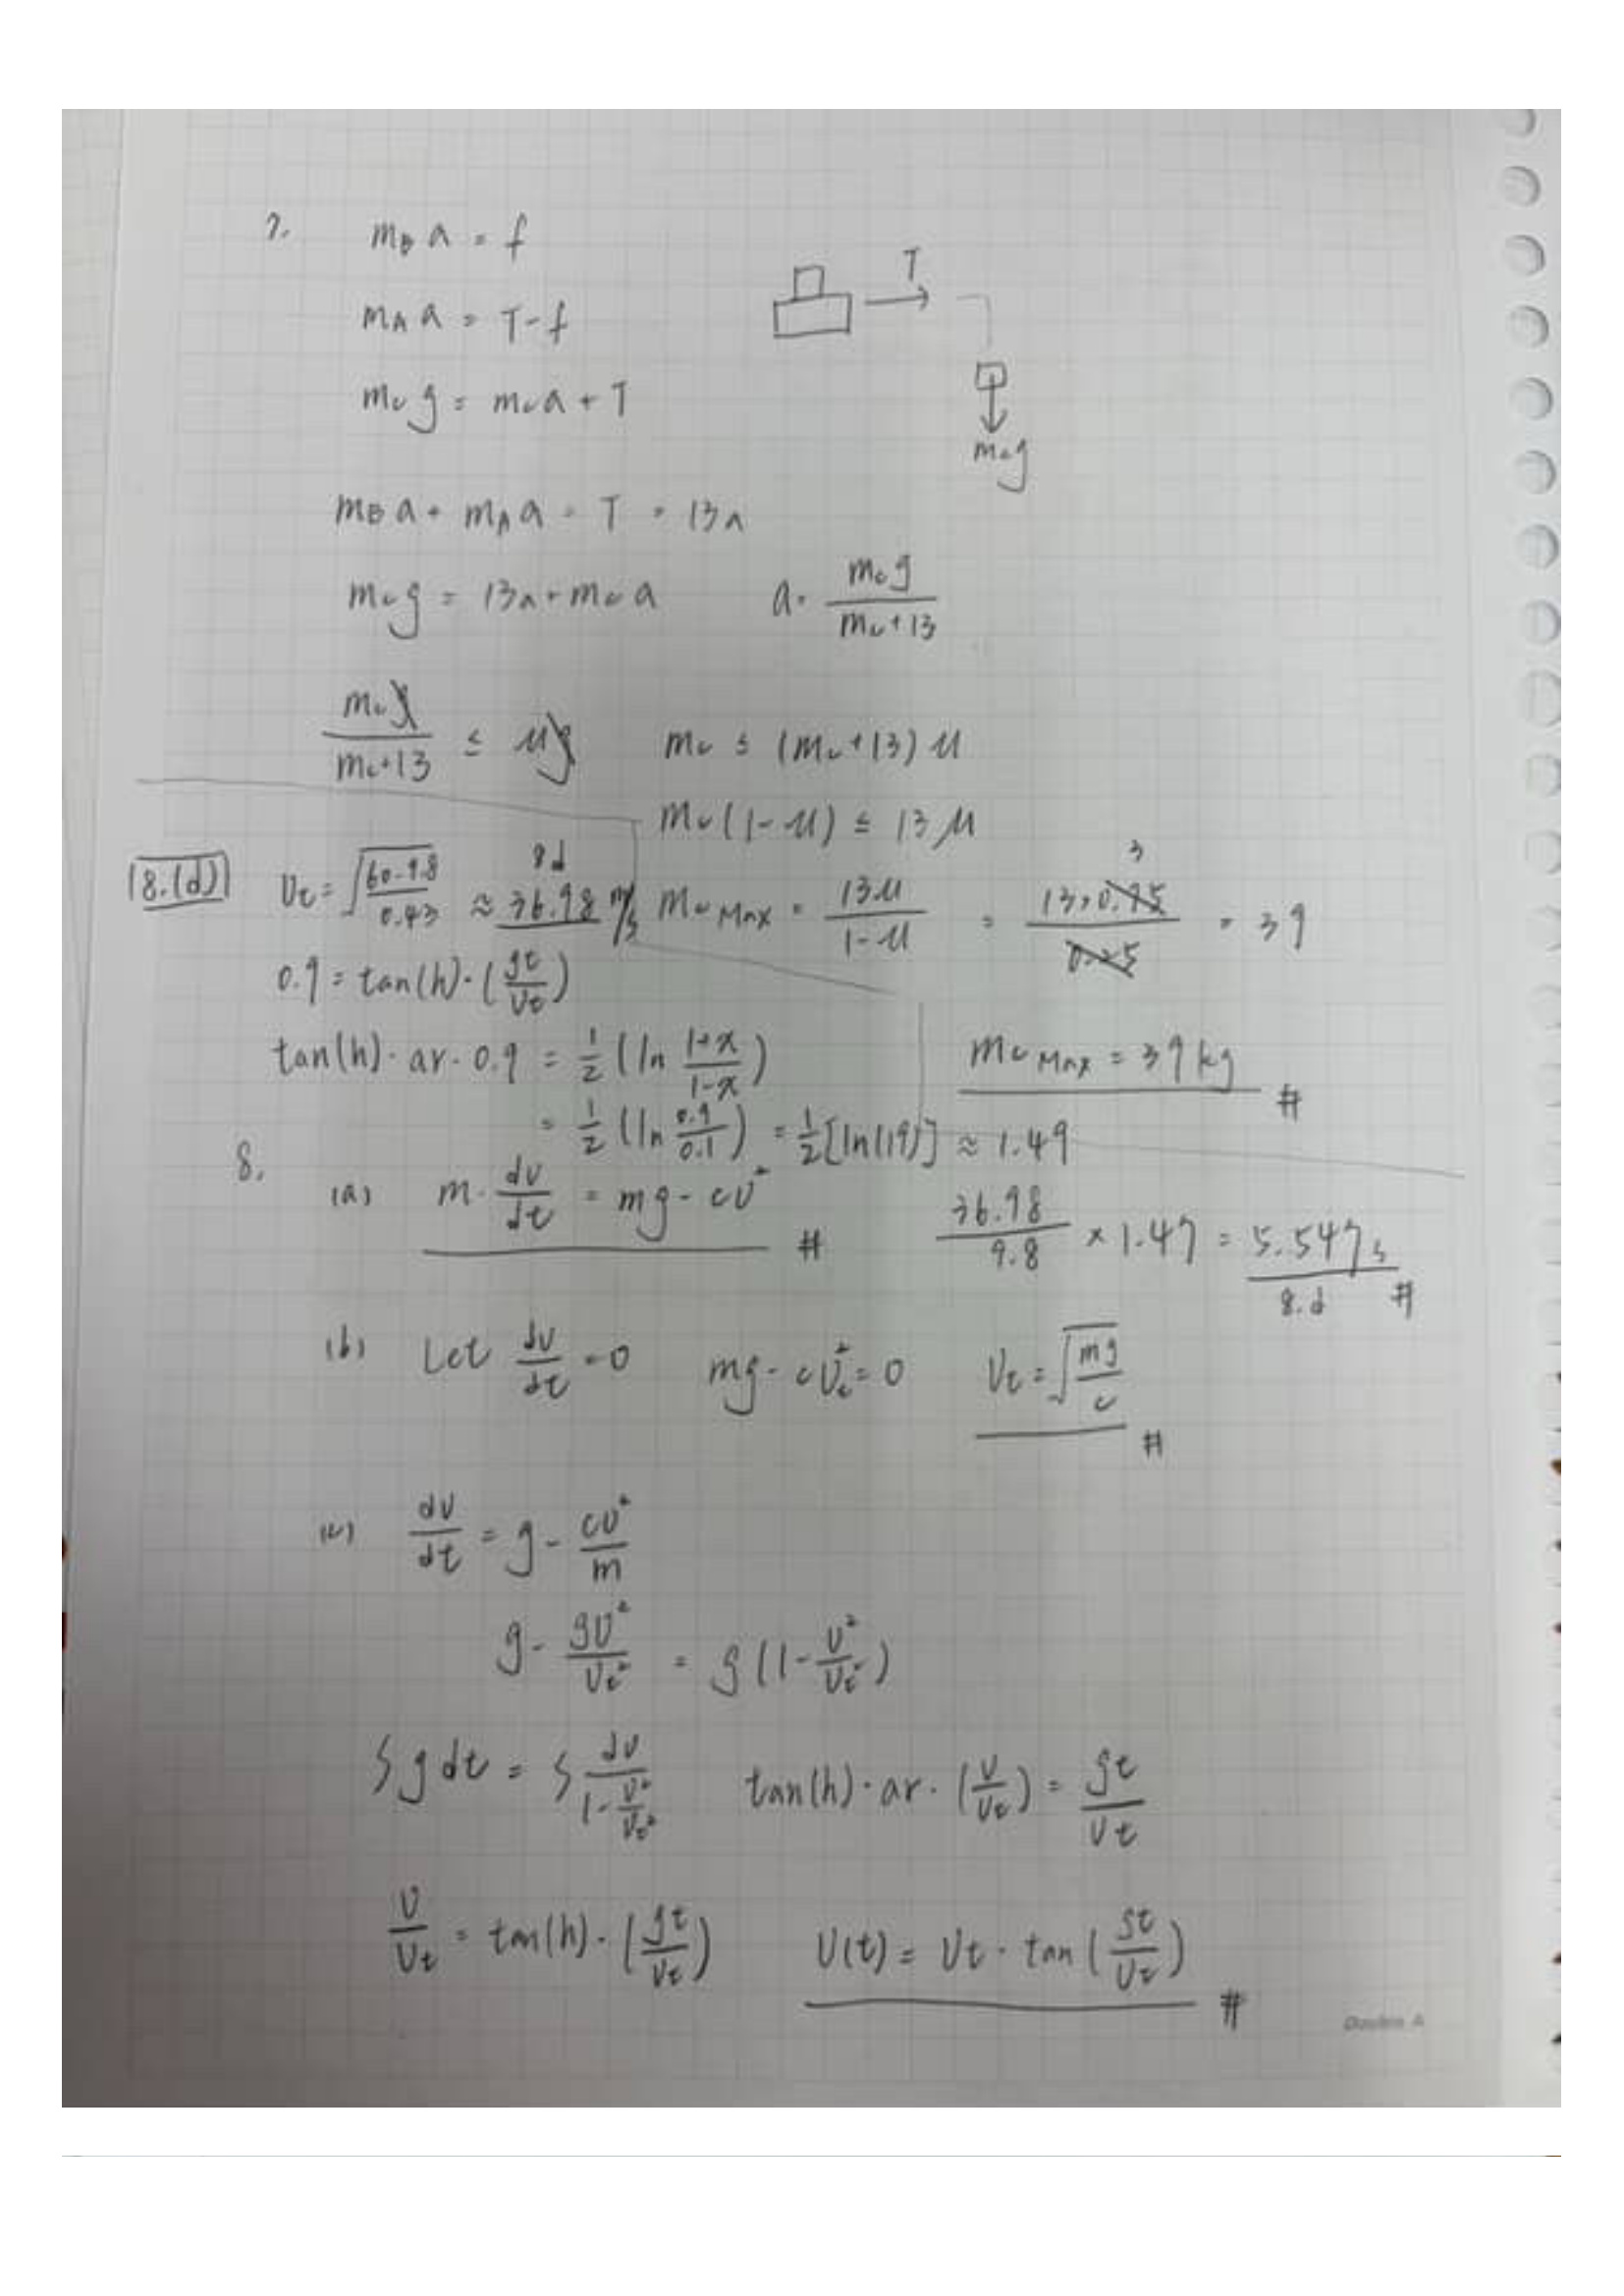 7. m_B a = f
m_A a = T - f
T
m_c g = m_c a + T
m_c g
m_B a + m_A a = T = 13a
m_c g = 13a + m_c a    a = \frac{m_c g}{m_c + 13}
\frac{m_c g}{m_c + 13} ≤ μg    m_c ≤ (m_c + 13) μ
m_c (1 - μ) ≤ 13μ
8.(d) V_t = \sqrt{\frac{60 \cdot 9.8}{0.43}} ≈ 36.98 m/s    8d
m_c Max = \frac{13μ}{1 - μ} = \frac{13 \times 0.75}{0.25} = 39    3
0.9 = tan(h) · (\frac{gt}{V_t})
tan(h) · ar · 0.9 = \frac{1}{2} (ln \frac{1+x}{1-x})
m_c Max = 39 kg #
= \frac{1}{2} (ln \frac{0.9}{0.1}) = \frac{1}{2} [ln(19)] ≈ 1.49
8. (a) m · \frac{dv}{dt} = mg - cv^2 #
\frac{36.98}{9.8} × 1.47 = 5.547 s #
8.d
(b) Let \frac{dv}{dt} = 0    mg - cv_t^2 = 0    V_t = \sqrt{\frac{mg}{c}} #
(c) \frac{dv}{dt} = g - \frac{cv^2}{m}
g - \frac{gv^2}{V_t^2} = g (1 - \frac{v^2}{V_t^2})
∫ g dt = ∫ \frac{dv}{1 - \frac{v^2}{V_t^2}}    tan(h) · ar · (\frac{v}{V_t}) = \frac{gt}{V_t}
\frac{v}{V_t} = tan(h) · (\frac{gt}{V_t})    v(t) = V_t · tan (\frac{gt}{V_t}) #
Double A